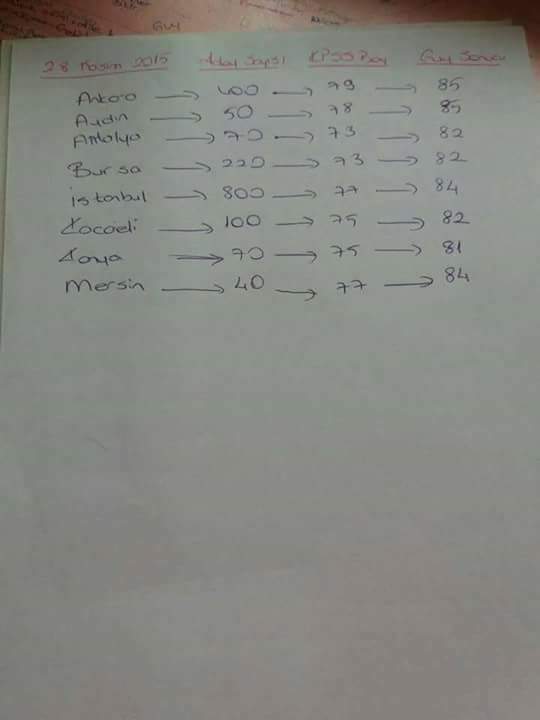 GUY
28 Kasım 2015 Aday Sayısı KPSS Bay Guy Sonucu
Ankara → 400 → 79 → 85
Aydın → 50 → 78 → 85
Antalya → 70 → 73 → 82
Bursa → 220 → 73 → 82
istanbul → 800 → 77 → 84
Kocaeli → 100 → 75 → 82
Konya → 70 → 75 → 81
Mersin → 40 → 77 → 84